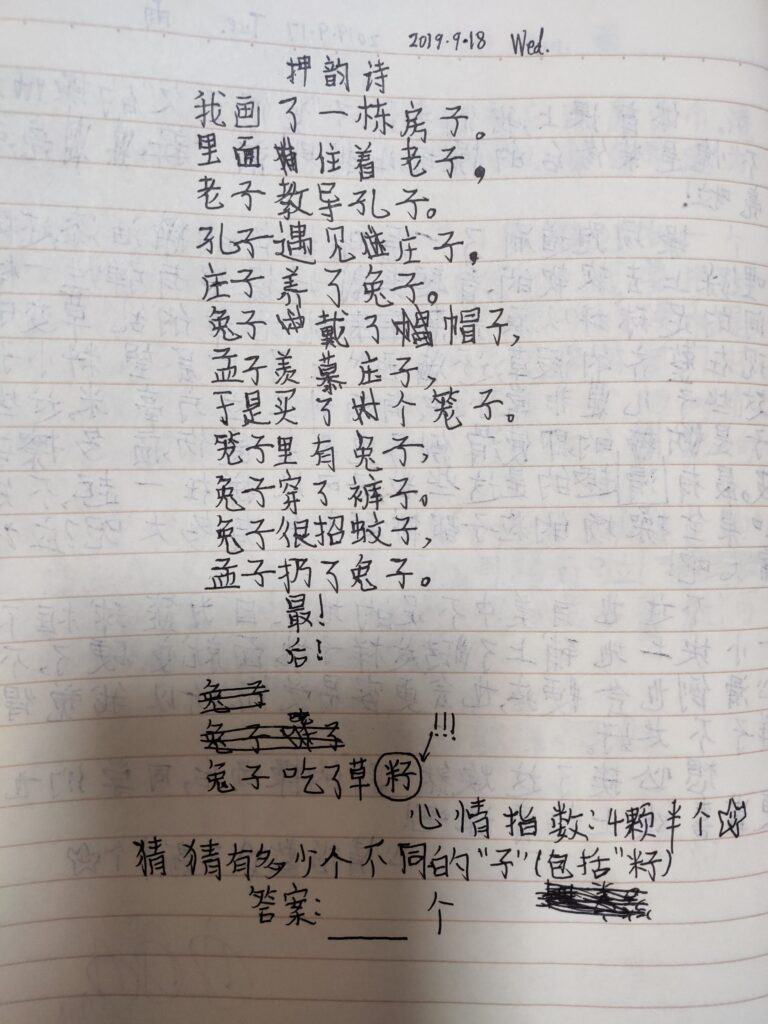 2019.9.18 Wed.
押韵诗
我画了一栋房子。
里面住着老子，
老子教导孔子。
孔子遇见庄子，
庄子养了兔子。
兔子戴了帽子，
孟子羡慕庄子，
于是买了个笼子。
笼子里有兔子，
兔子穿了裤子。
兔子很招蚊子，
孟子扔了兔子。
最！
后！
兔子
兔子
!!!
兔子吃了草籽
心情指数：4颗半个☆
猜猜有多少个不同的"子"(包括"籽)
答案：____个